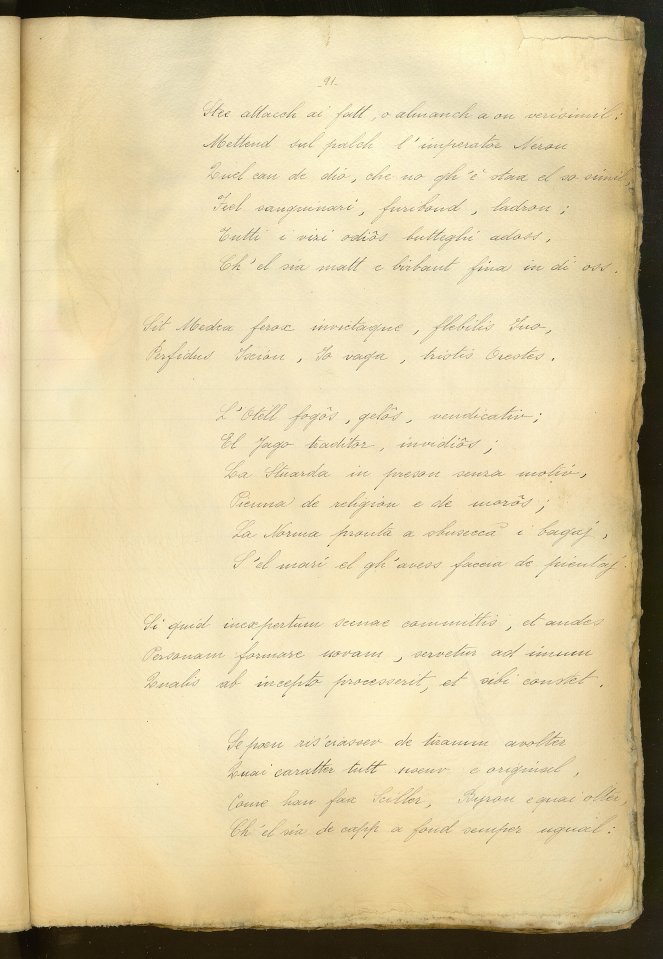 _91_
Stee attacch ai fatt, o almanch a on verisimil:
Mettend sul palch l'imperator Neron
Quel can de dio, che no gh'è staa el so simil,
Feel sanguinari, furibond, ladron;
Tutti i vizi odiôs butteghi adoss,
Ch'el sia matt e birbant fina in di oss.
Sit Medea ferox invictaque, flebilis Ino,
Perfidus Ixion, Io vaga, tristis Orestes.
L'Otell fogôs, gelôs, vendicativ;
El Jago traditor, invidiôs;
La Stuarda in preson senza motiv,
Pienna de religion e de morôs;
La Norma pronta a sbuseccà i bagaj,
S'el marì el gh'avess faccia de pientaj.
Si quid inexpertum scenae committis, et audes
Personam formare novam, servetur ad imum
Qualis ab incepto processerit, et sibi constet.
Se poeu ris'ciassev de tirann avolter
Quai caratter tutt noeuv e original,
Come han faa Sciller, Byron e quai olter,
Ch'el sia de capp a fond semper ugual: